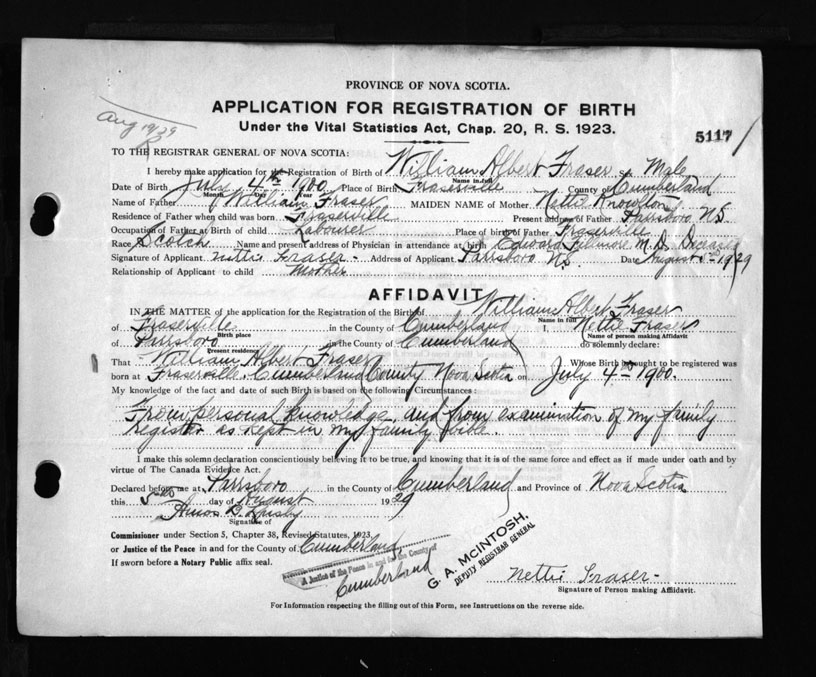 PROVINCE OF NOVA SCOTIA.
APPLICATION FOR REGISTRATION OF BIRTH
Under the Vital Statistics Act, Chap. 20, R. S. 1923.
Aug 19/29
5117
TO THE REGISTRAR GENERAL OF NOVA SCOTIA:
I hereby make application for the Registration of Birth of William Albert Fraser Male
Name in full
Date of Birth July 4th 1900 Place of Birth Fraserville County of Cumberland
Month Day Year
Name of Father William Fraser MAIDEN NAME of Mother Nettie Knowlton
Residence of Father when child was born Fraserville Present address of Father Parrsboro N.S.
Occupation of Father at Birth of child Labourer Place of birth of Father Fraserville
Race Scotch Name and present address of Physician in attendance at birth Edward M.D.
Signature of Applicant Nettie Fraser - Address of Applicant Parrsboro N.S. Date August 5 1929
Relationship of Applicant to child Mother
AFFIDAVIT
IN THE MATTER of the application for the Registration of the Birth of William Albert Fraser
Name in full
of Fraserville in the County of Cumberland I, Nettie Fraser
Birth place Name of person making Affidavit
of Parrsboro in the County of Cumberland do solemnly declare:
Present residence
That William Albert Fraser Whose Birth is sought to be registered was
born at Fraserville, Cumberland County Nova Scotia on July 4 1900.
My knowledge of the fact and date of such Birth is based on the following Circumstances:
From personal knowledge and from examination of my family
register as kept in my family bible.
I make this solemn declaration conscientiously believing it to be true, and knowing that it is of the same force and effect as if made under oath and by
virtue of The Canada Evidence Act.
Declared before me at Parrsboro in the County of Cumberland and Province of Nova Scotia
this 5 day of August 1929
Amos B.
Signature of
Commissioner under Section 5, Chapter 38, Revised Statutes, 1923.
or Justice of the Peace in and for the County of Cumberland
If sworn before a Notary Public affix seal.
A Justice of the Peace in and for the County of
Cumberland
G. A. McINTOSH,
DEPUTY REGISTRAR GENERAL
Nettie Fraser -
Signature of Person making Affidavit.
For Information respecting the filling out of this Form, see Instructions on the reverse side.